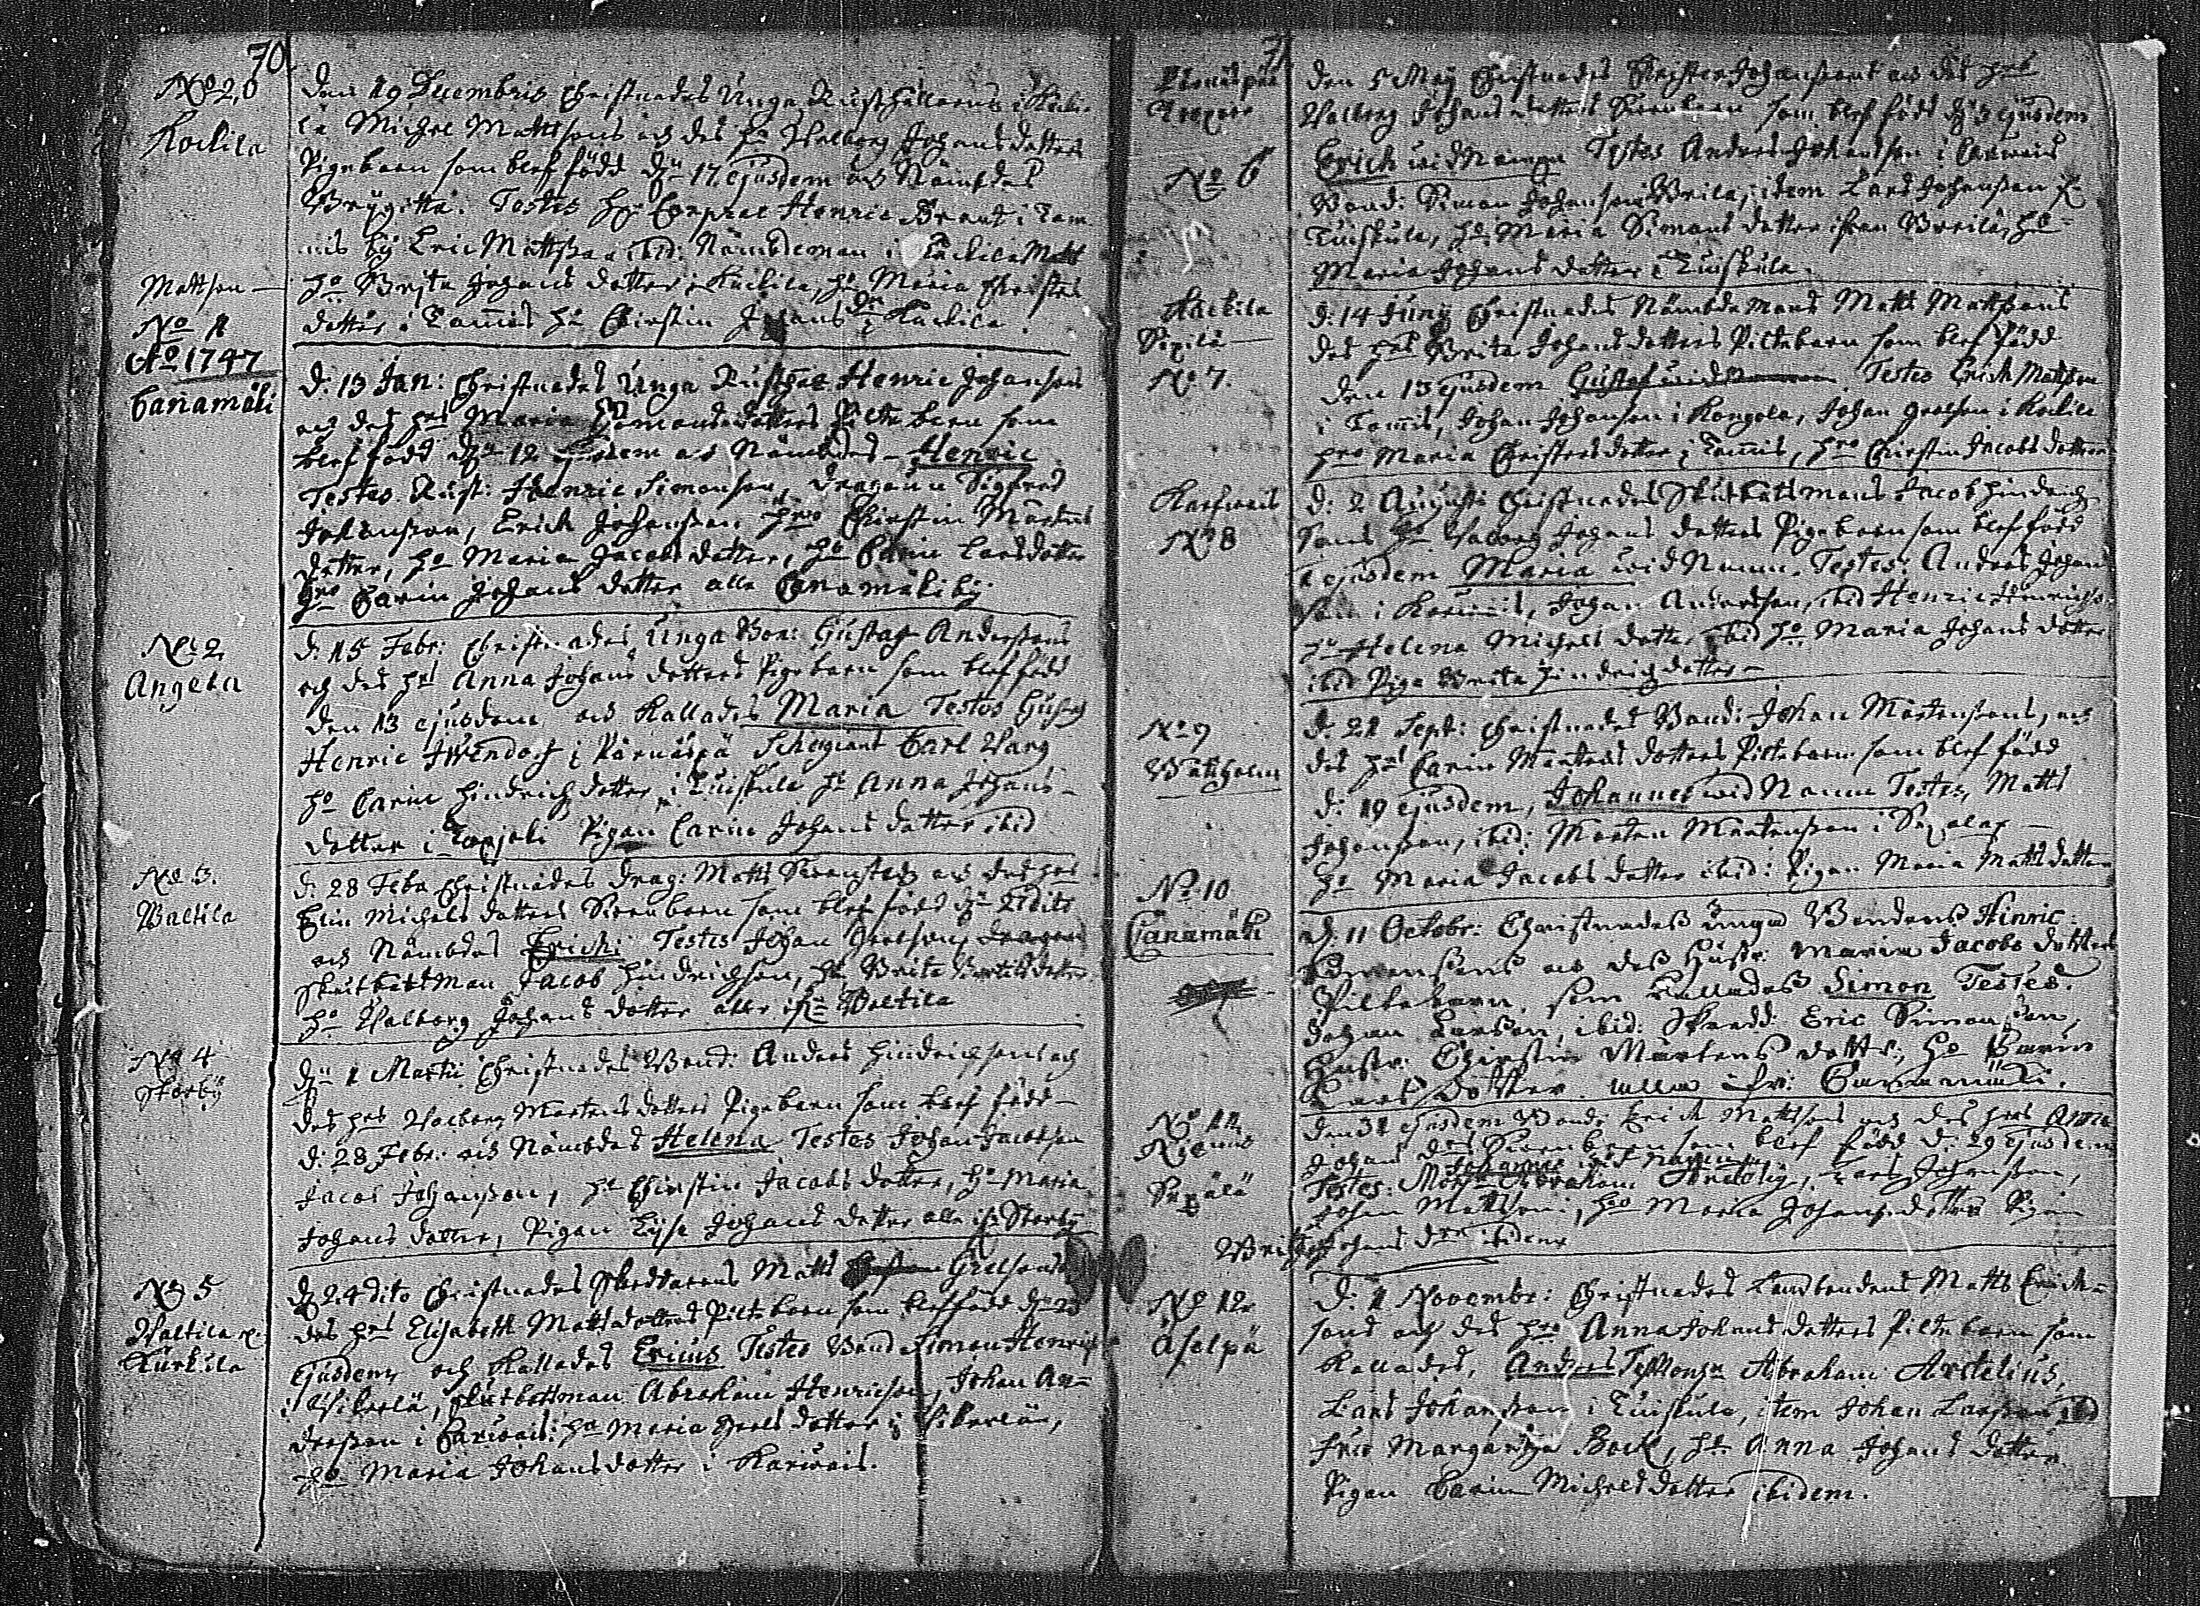 70
No 20
Kockila
Den 19 Decembris Christnades Unga Rusthållarens i Kocki-
la Michel Mattsons och des ho Walborg Johans dotters
Pigebarn som blef född dn 17 ejusdem och Nämbdes
Brygitta. Testes Corpral Henric Brand i Tam
mis by Eric Mattson ibid: Nämbdeman i Kackila Matt
Mattson
ho Bryta Johans dotter i Kackila, ho Maria Christers
dotter i Tammis ho Christin Johans dr i Kackila
No 1
Ao 1747
Canamäki
d: 13 Jan: Christnades Unga Rusth: Henric Johansons
och des hos Maria Simons dotters Pilte barn som
blef född dn 12 ejusdem och Nämbdes Henric
Testes Rust: Henric Simonson, Dragoun Sigfred
Johansson, Erich Johansson ho Christin Mårtens
dotter, ho Maria Jacobs dotter, ho Carin Larsdotter
ho Carin Johans dotter alla Canamäki by
No 2
Angela
d: 15 Febr: Christnades Unga Bon: Gustaf Anderssons
och des hos Anna Johans dotters Pigebarn som blef född
den 13 ejusdem och Kallades Maria Testes
Henric i Pärnäspä Schergiant Carl Warg
ho Carin Hindrichs dotter i Tuiskula ho Anna Johans-
dotter i Torjoki Pigan Carin Johans dotter ibid
No 3.
Waltila
d: 28 Febr Christnades Drag: Matts och des hos
Elin Michels dotters Swenbarn som blef född dn 27 dito
och Nämbdes Erich: Testes Johan Grelsons
Skutbåtsman Jacob Hindrichson, ho Brita Bertilsdotter
ho Walborg Johans dotter alle ifrn Waltila
No 4
Storby
dn 1 Martii Christnades Bond: Anders Hindrichsons och
des hos Walborg Mårtens dotters Pigebarn som blef född
d: 28 Febr: och Nämbdes Helena Testes Johan Jacobson
Jacob Johansson, ho Christin Jacobs dotter, ho Maria
Johans dotter, Pigan Lijsa Johans dotter alle ifr Storby
No 5
Waltila
Kurkila
d 24 dito Christnades Skreddarens Matts Grelsons
des hos Elisabeth Matts dotters Pilte barn som blef född dn 23
ejusdem och Kallades Ericus Testes Bond Simon Henricss
i Wikerlä, Skutbåttman Abraham Henricson, Johan An-
dersson i Karwais: ho Maria Grels dotter i Wikerlä,
ho Maria Johans dotter i Karwais.
71
No 6
den 5 Maij Christnades Christer Johanssons och des hos
Walborg Johans dotters Swenbarn som blef född d 3 ejusdem
Erich wid Namn Testes Anders Johansson i Carwais
Bond: Simon Johanson Breila, idem Lars Johansson
Tuiskula, ho Maria Simons dotter ifrån Breila, ho
Maria Johans dotter i Tuiskula.
Kackila
Sipilä
No 7.
d: 14 Junij Christnades Nämbdemans Matts Mattssons
des hos Brita Johans dotters Piltebarn som blef född
den 13 ejusdem Gustaf wid Testes Erich Mattson
i Tammis, Johan Johansson i Kangola, Johan Grelsson i Kackila
ho Maria Christersdotter i Tammis, ho Christin Jacobs dotter
Karfwais
No 8
d: 2 Augusti Christnades Skutbåttsmans Jacob Hindrich
Sons ho Walborg Johans dotters Pigebarn som blef född
1 ejusdem Maria wid Namn. Testes Anders Johan
son i Karwais, Johan Andersson, ibid Henric Henrichs.
ho Helena Michels dotter ibid ho Maria Johans dotter
ibid Piga Brita Hindrichsdotter
No 9
Wattholm
d: 21 Sept: Christnades Bond: Johan Mårtenssons, och
des hos Carin Mårtens dotters Piltebarn som blef född
d: 19 ejusdem, Johannes wid Namn Testes, Matts
Johansson, ibid: Morten Mårtensson i
ho Maria Jacobs dotter ibid: Pigan Maria Matts dotter
No 10
Canamäki
d. 11 Octobr: Christnades unga Bondens Hinric
Simonssons och des Hustr: Maria Jacobs dotter
Piltebarn, som kallades Simon Testes.
Johan Larsson, ibid: Skredd: Eric Simonson,
Hustr: Christin Mårtens dotter, ho Carin
Lars Dotter alla ifr: Canamäki.
No 11
Sepälä
den 31 ejusdem Bond: Erich Mattsons och des hos Anna
Johans drs Swenbarn som blef född d. 29 ejusdem
Johannes wid Namn
Testes: Abraham, Lars Johansson,
Johan Mattson, ho Maria Johans dotter Piga
Brita Johans dr ibidem
No 12
Äselpä
d: 1 Novembr: Christnades Landbondens Matts Erich-
sons och des hos Anna Johans dotters Piltebarn som
Kallades, Anders Test Abraham Arctelius,
Lars Johansson i Tuiskula, item Johan Larsson ibid
Fru Margareta Bock, ho Anna Johans dotter
Pigan Carin Michels dotter ibidem.